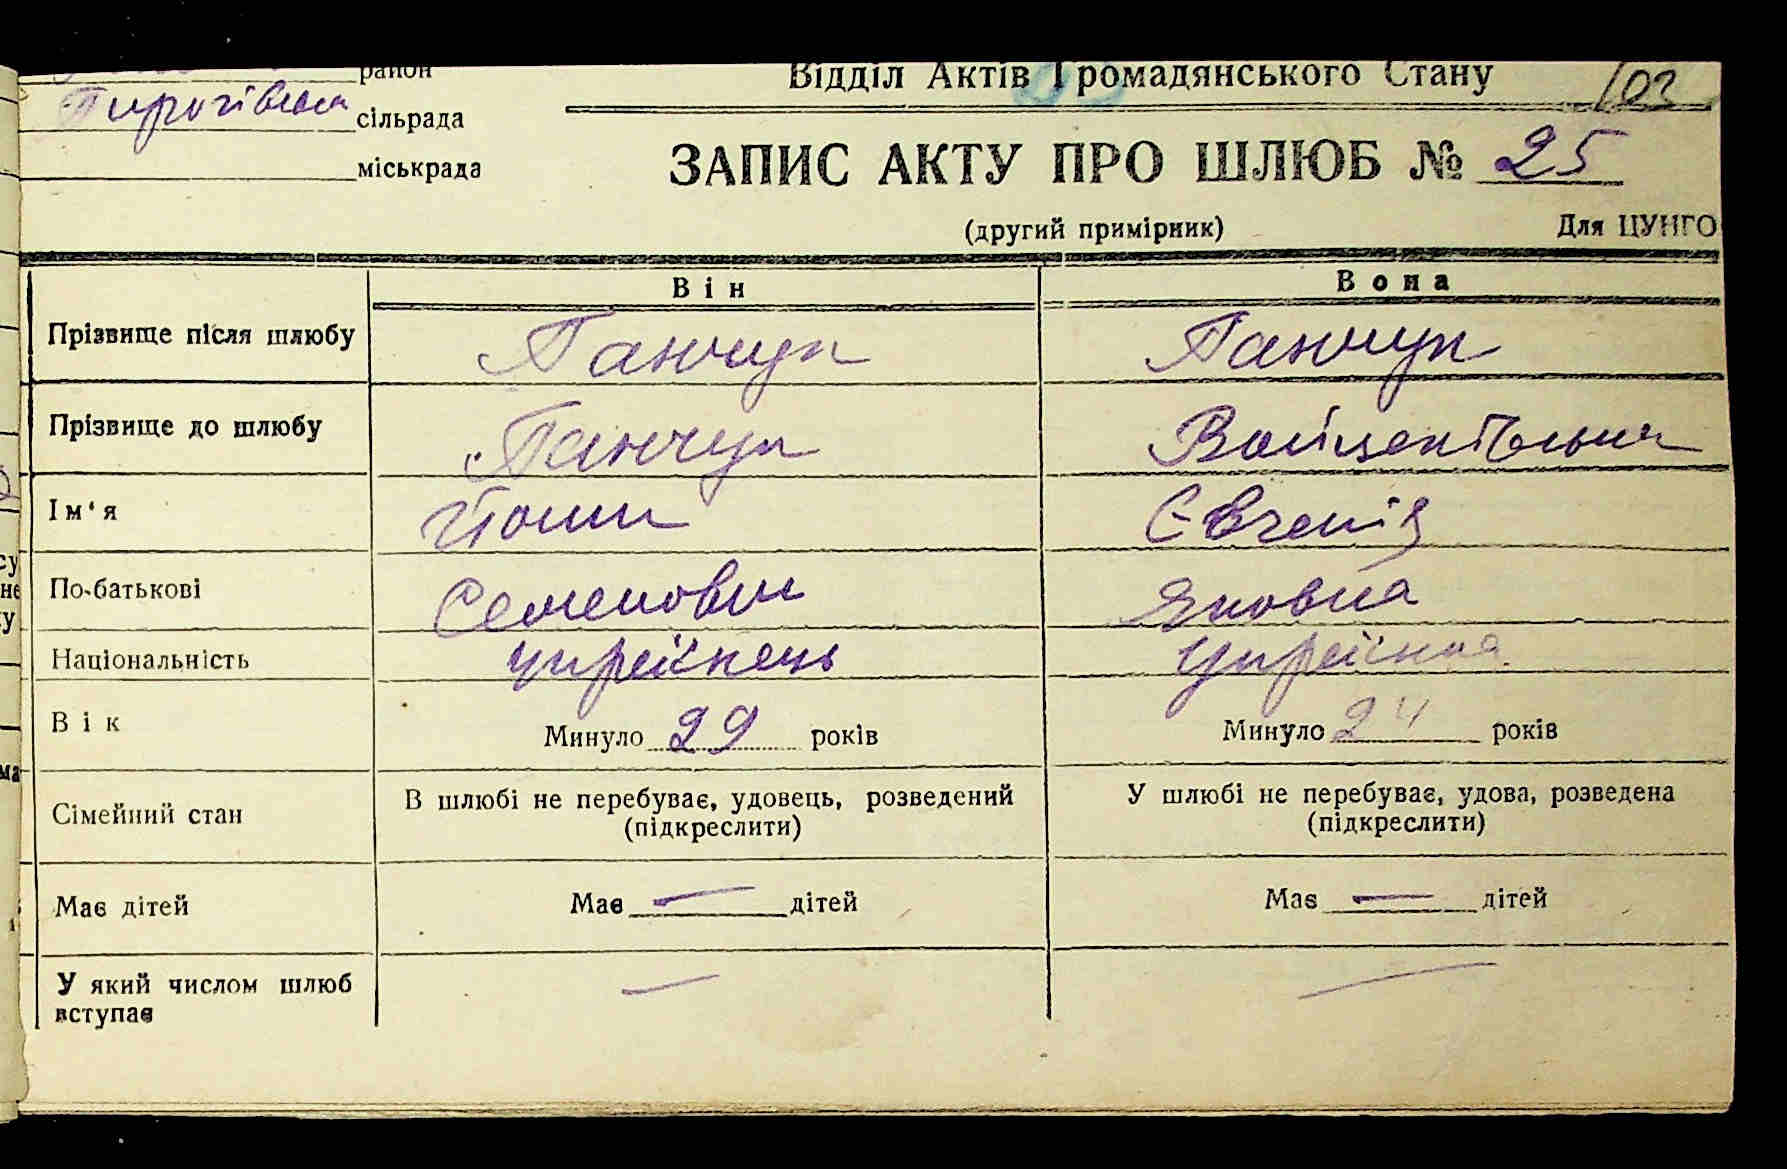 район
Відділ Актів Громадянського Стану 103
Пирогівська сільрада
міськрада
ЗАПИС АКТУ ПРО ШЛЮБ № 25
(другий примірник) Для ЦУНГО
Він Вона
Прізвище після шлюбу Панчук Панчук
Прізвище до шлюбу Панчук
Ім'я Йосип Євгенія
По-батькові Семенович Яковна
Національність українець Українка
Вік Минуло 29 років Минуло 24 років
Сімейний стан В шлюбі не перебуває, удовець, розведений У шлюбі не перебуває, удова, розведена
(підкреслити) (підкреслити)
Має дітей Має — дітей Має — дітей
У який числом шлюб — —
вступає